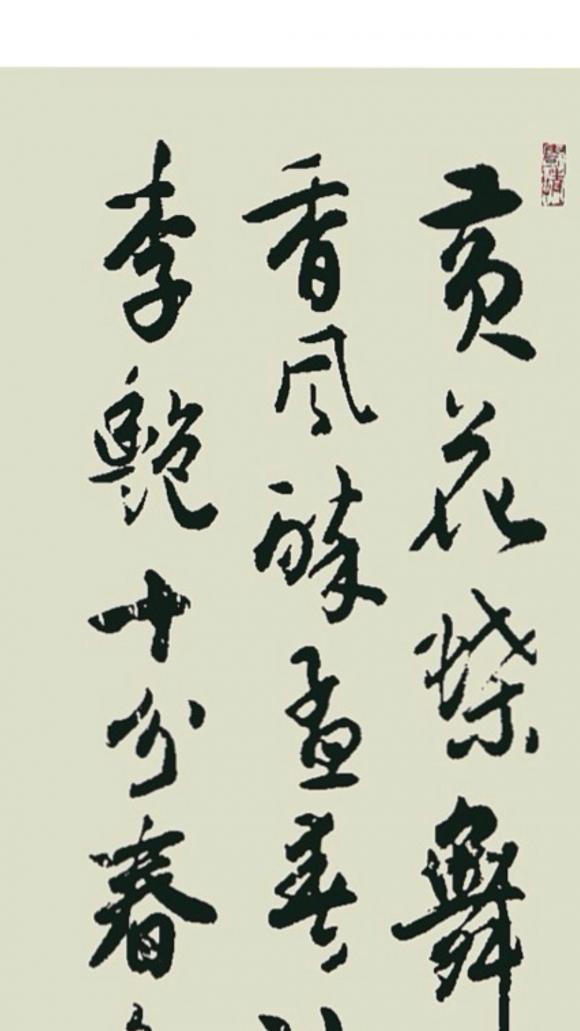 黄花蝶舞
香风醉孟
李艷十分春